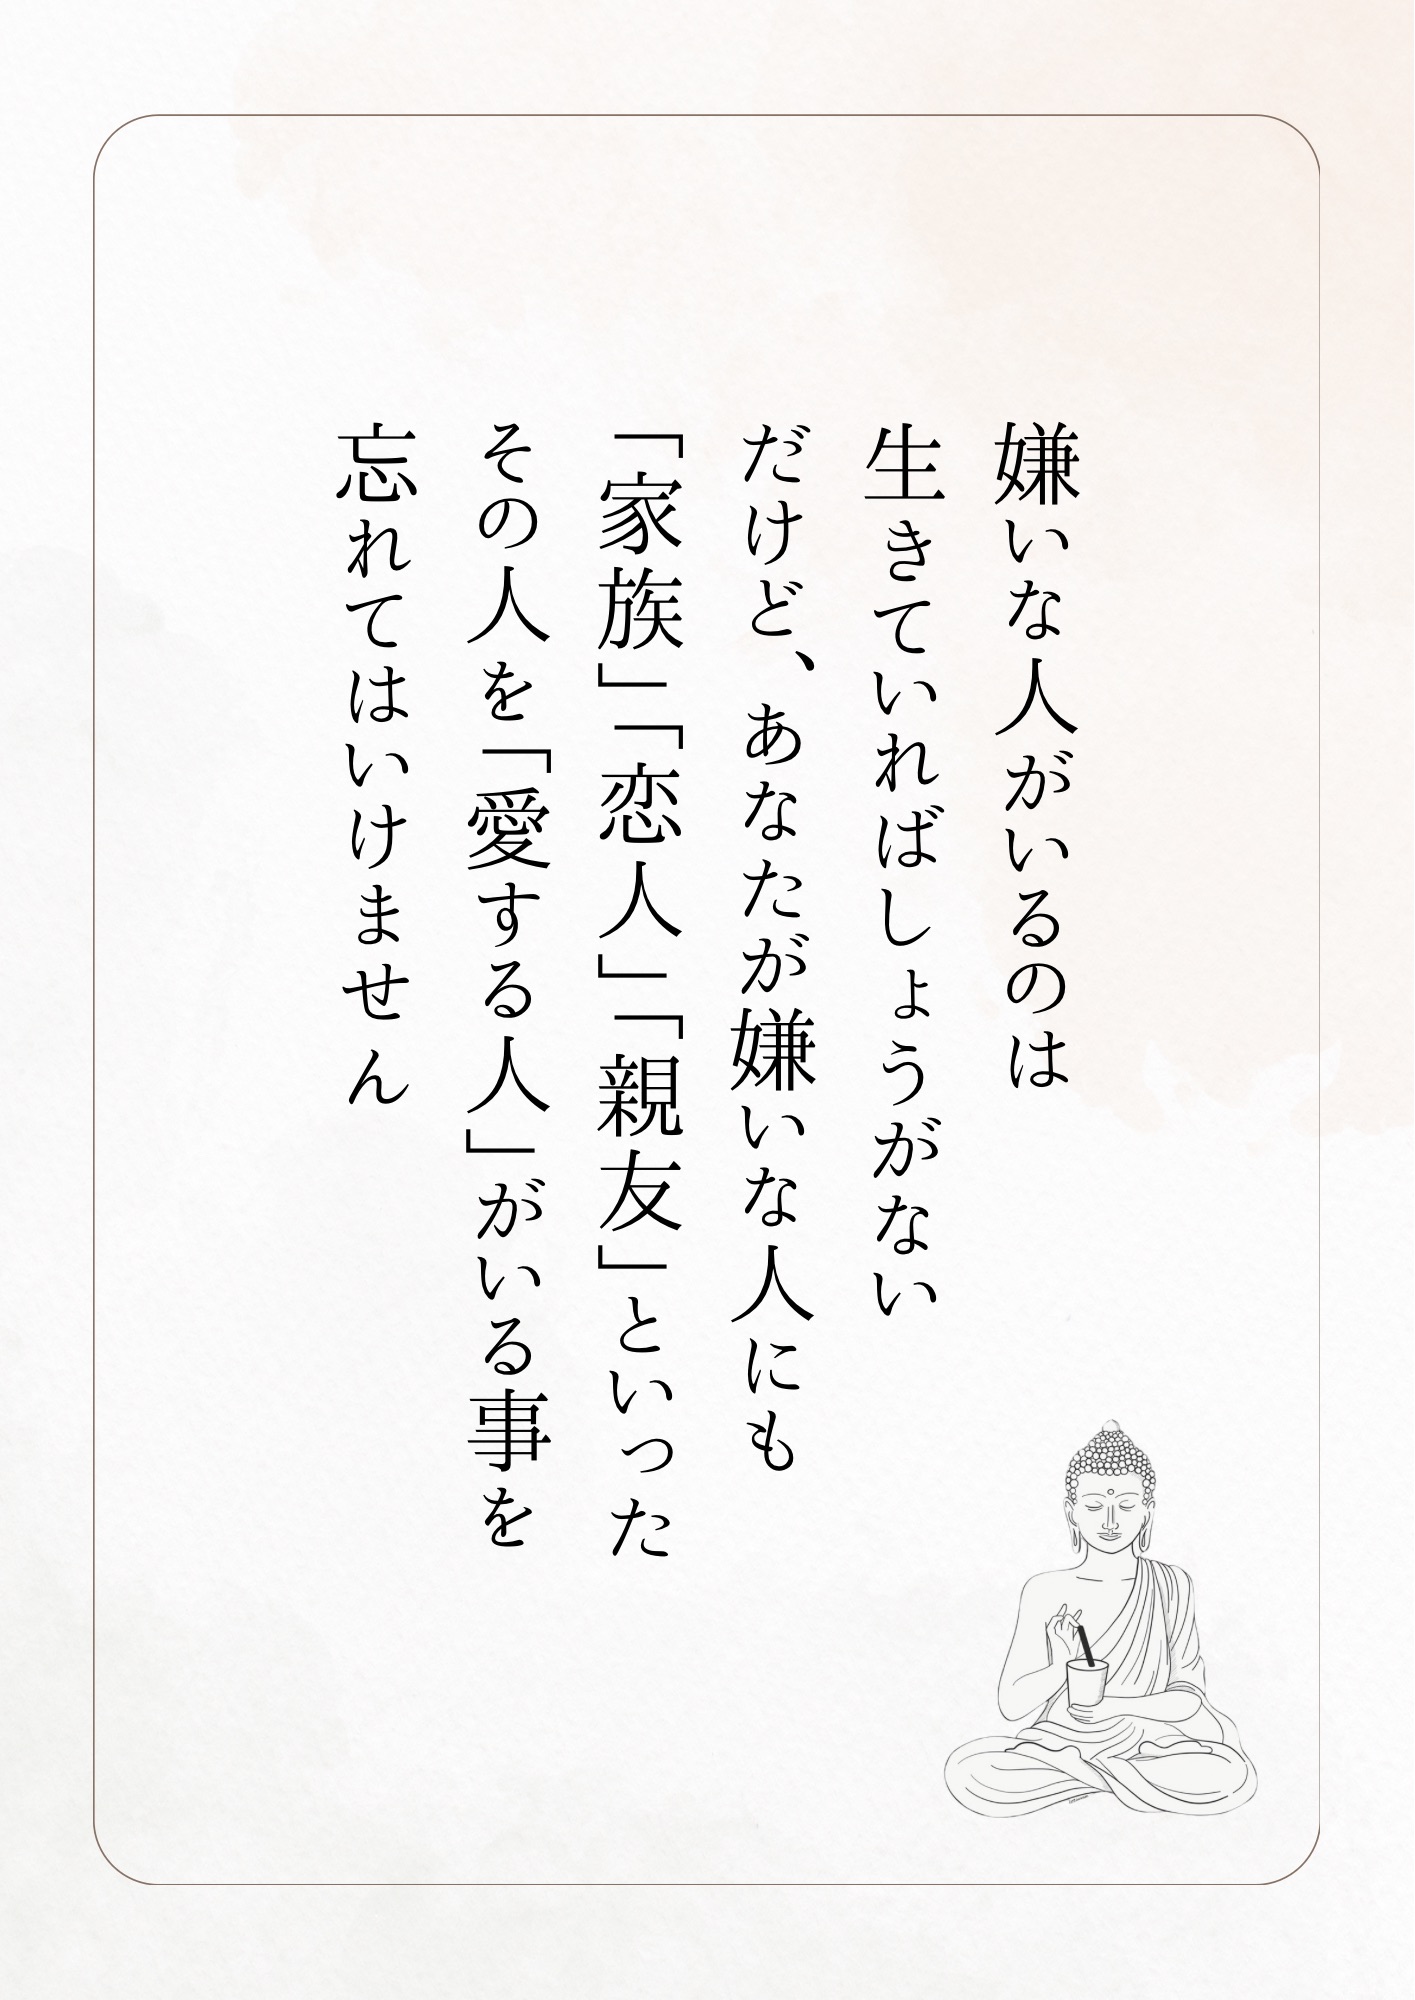 嫌いな人がいるのは
生きていればしょうがない
だけど、あなたが嫌いな人にも
「家族」「恋人」「親友」といった
その人を「愛する人」がいる事を
忘れてはいけません